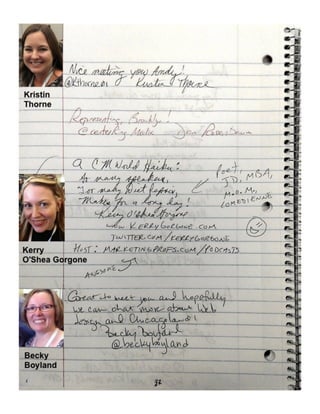 Nice meeting you Andy!
@KThorne01 Kristin Thorne
Kristin
Thorne
Representing, Brooklyn!
A CMWorld Haiku:
So many speakers,
Too many Diet Pepsis,
Makes for a long day!
Kerry O'Shea Gorgone
Poet,
JD, MBA,
Mom,
COMEDIENNE
www.KERRYGORGONE.COM
TWITTER.COM/KERRYGORGONE
HOST: MARKETINGPROFS.COM/PODCASTS
AWESOME
Kerry
O'Shea Gorgone
Great to meet you and hopefully
we can chat more about web
design and Chicagoland!
Becky Boyland
@beckyboyland
Becky
Boyland